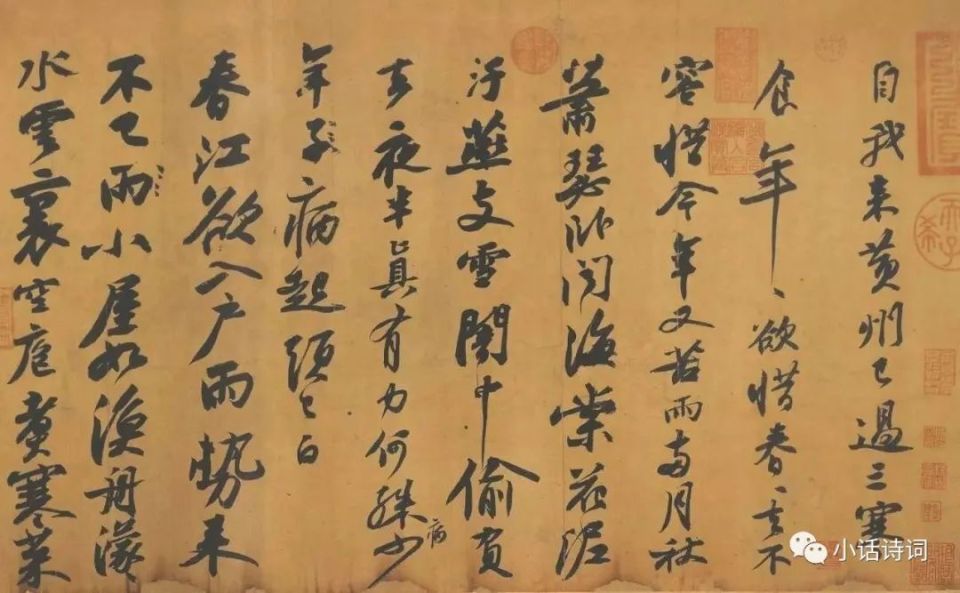 自我来黄州已過三寒
食年、欲惜春、去不
容惜今年又苦雨兩月秋
蕭瑟卧聞海棠花泥
汙燕支雪闇中偷負
去夜半真有力何殊少
病
年子病起頭已白
春江欲入户雨勢来
不已雨小屋如漁舟濛〻
水雲裏空庖煮寒菜
小话诗词